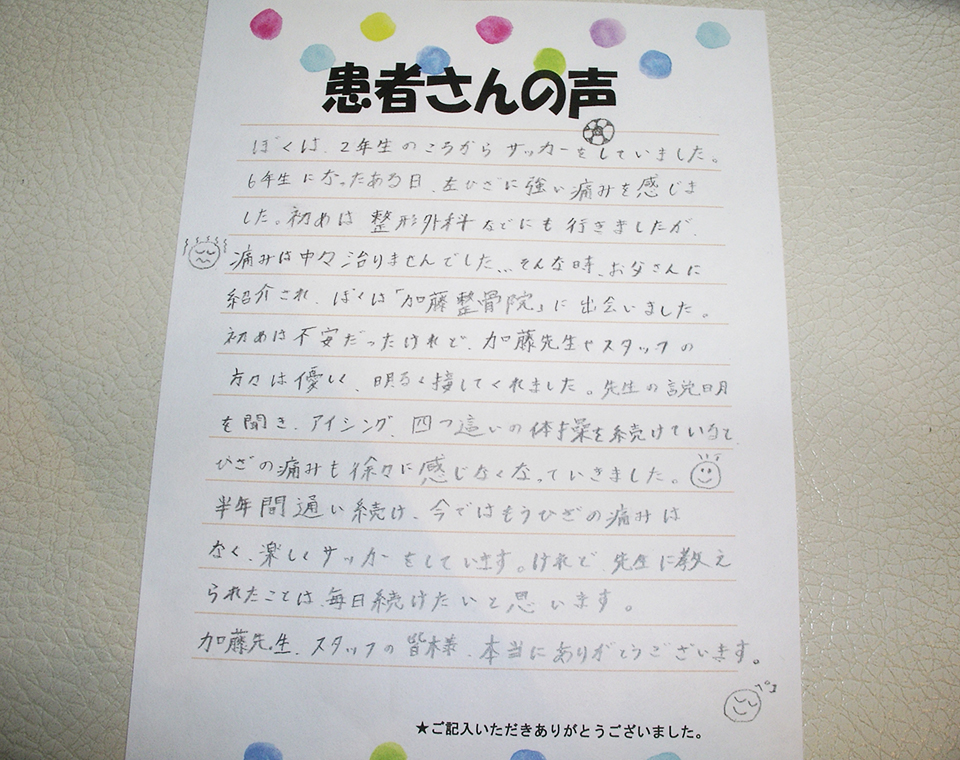 患者さんの声
ぼくは、2年生のころからサッカーをしていました。
6年生になったある日、左ひざに強い痛みを感じま
した。初めは整形外科などにも行きましたが、
痛みは中々治りませんでした…そんな時、お父さんに
紹介され、ぼくは「加藤整骨院」に出会いました。
初めは不安だったけれど、加藤先生やスタッフの
方々は優しく、明るく接してくれました。先生の説明
を聞き、アイシング、四つ這いの体操を続けていると、
ひざの痛みも徐々に感じなくなっていきました。
半年間通い続け、今ではもうひざの痛みは
なく、楽しくサッカーをしています。けれど、先生に教え
られたことは、毎日続けたいと思います。
加藤先生、スタッフの皆様、本当にありがとうございます。
ペコ
★ご記入いただきありがとうございました。